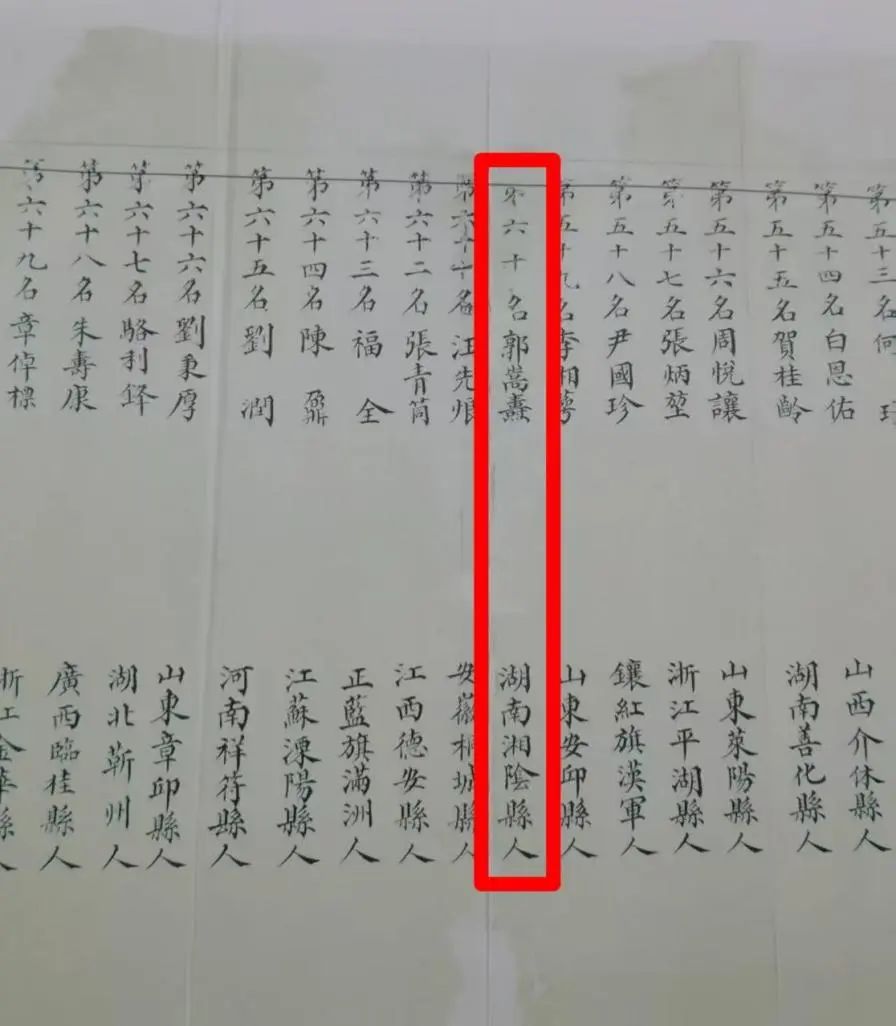 第五十三名何
第五十四名白恩佑 山西介休縣人
第五十五名賀桂齡 湖南善化縣人
第五十六名周悅讓 山東萊陽縣人
第五十七名張炳堃 浙江平湖縣人
第五十八名尹國珍 鑲紅旗漢軍人
第五十九名李湘 山東安邱縣人
第六十名郭嵩燾 湖南湘陰縣人
第六十名江先 安徽桐城縣人
第六十二名張青筒 江西德安縣人
第六十三名福全 正藍旗滿洲人
第六十四名陳鼐 江蘇溧陽縣人
第六十五名劉潤 河南祥符縣人
第六十六名劉秉厚 山東章邱縣人
第六十七名駱利鋒 湖北蘄州人
第六十八名朱壽康 廣西臨桂縣人
第六十九名章倬標 浙江金華縣人